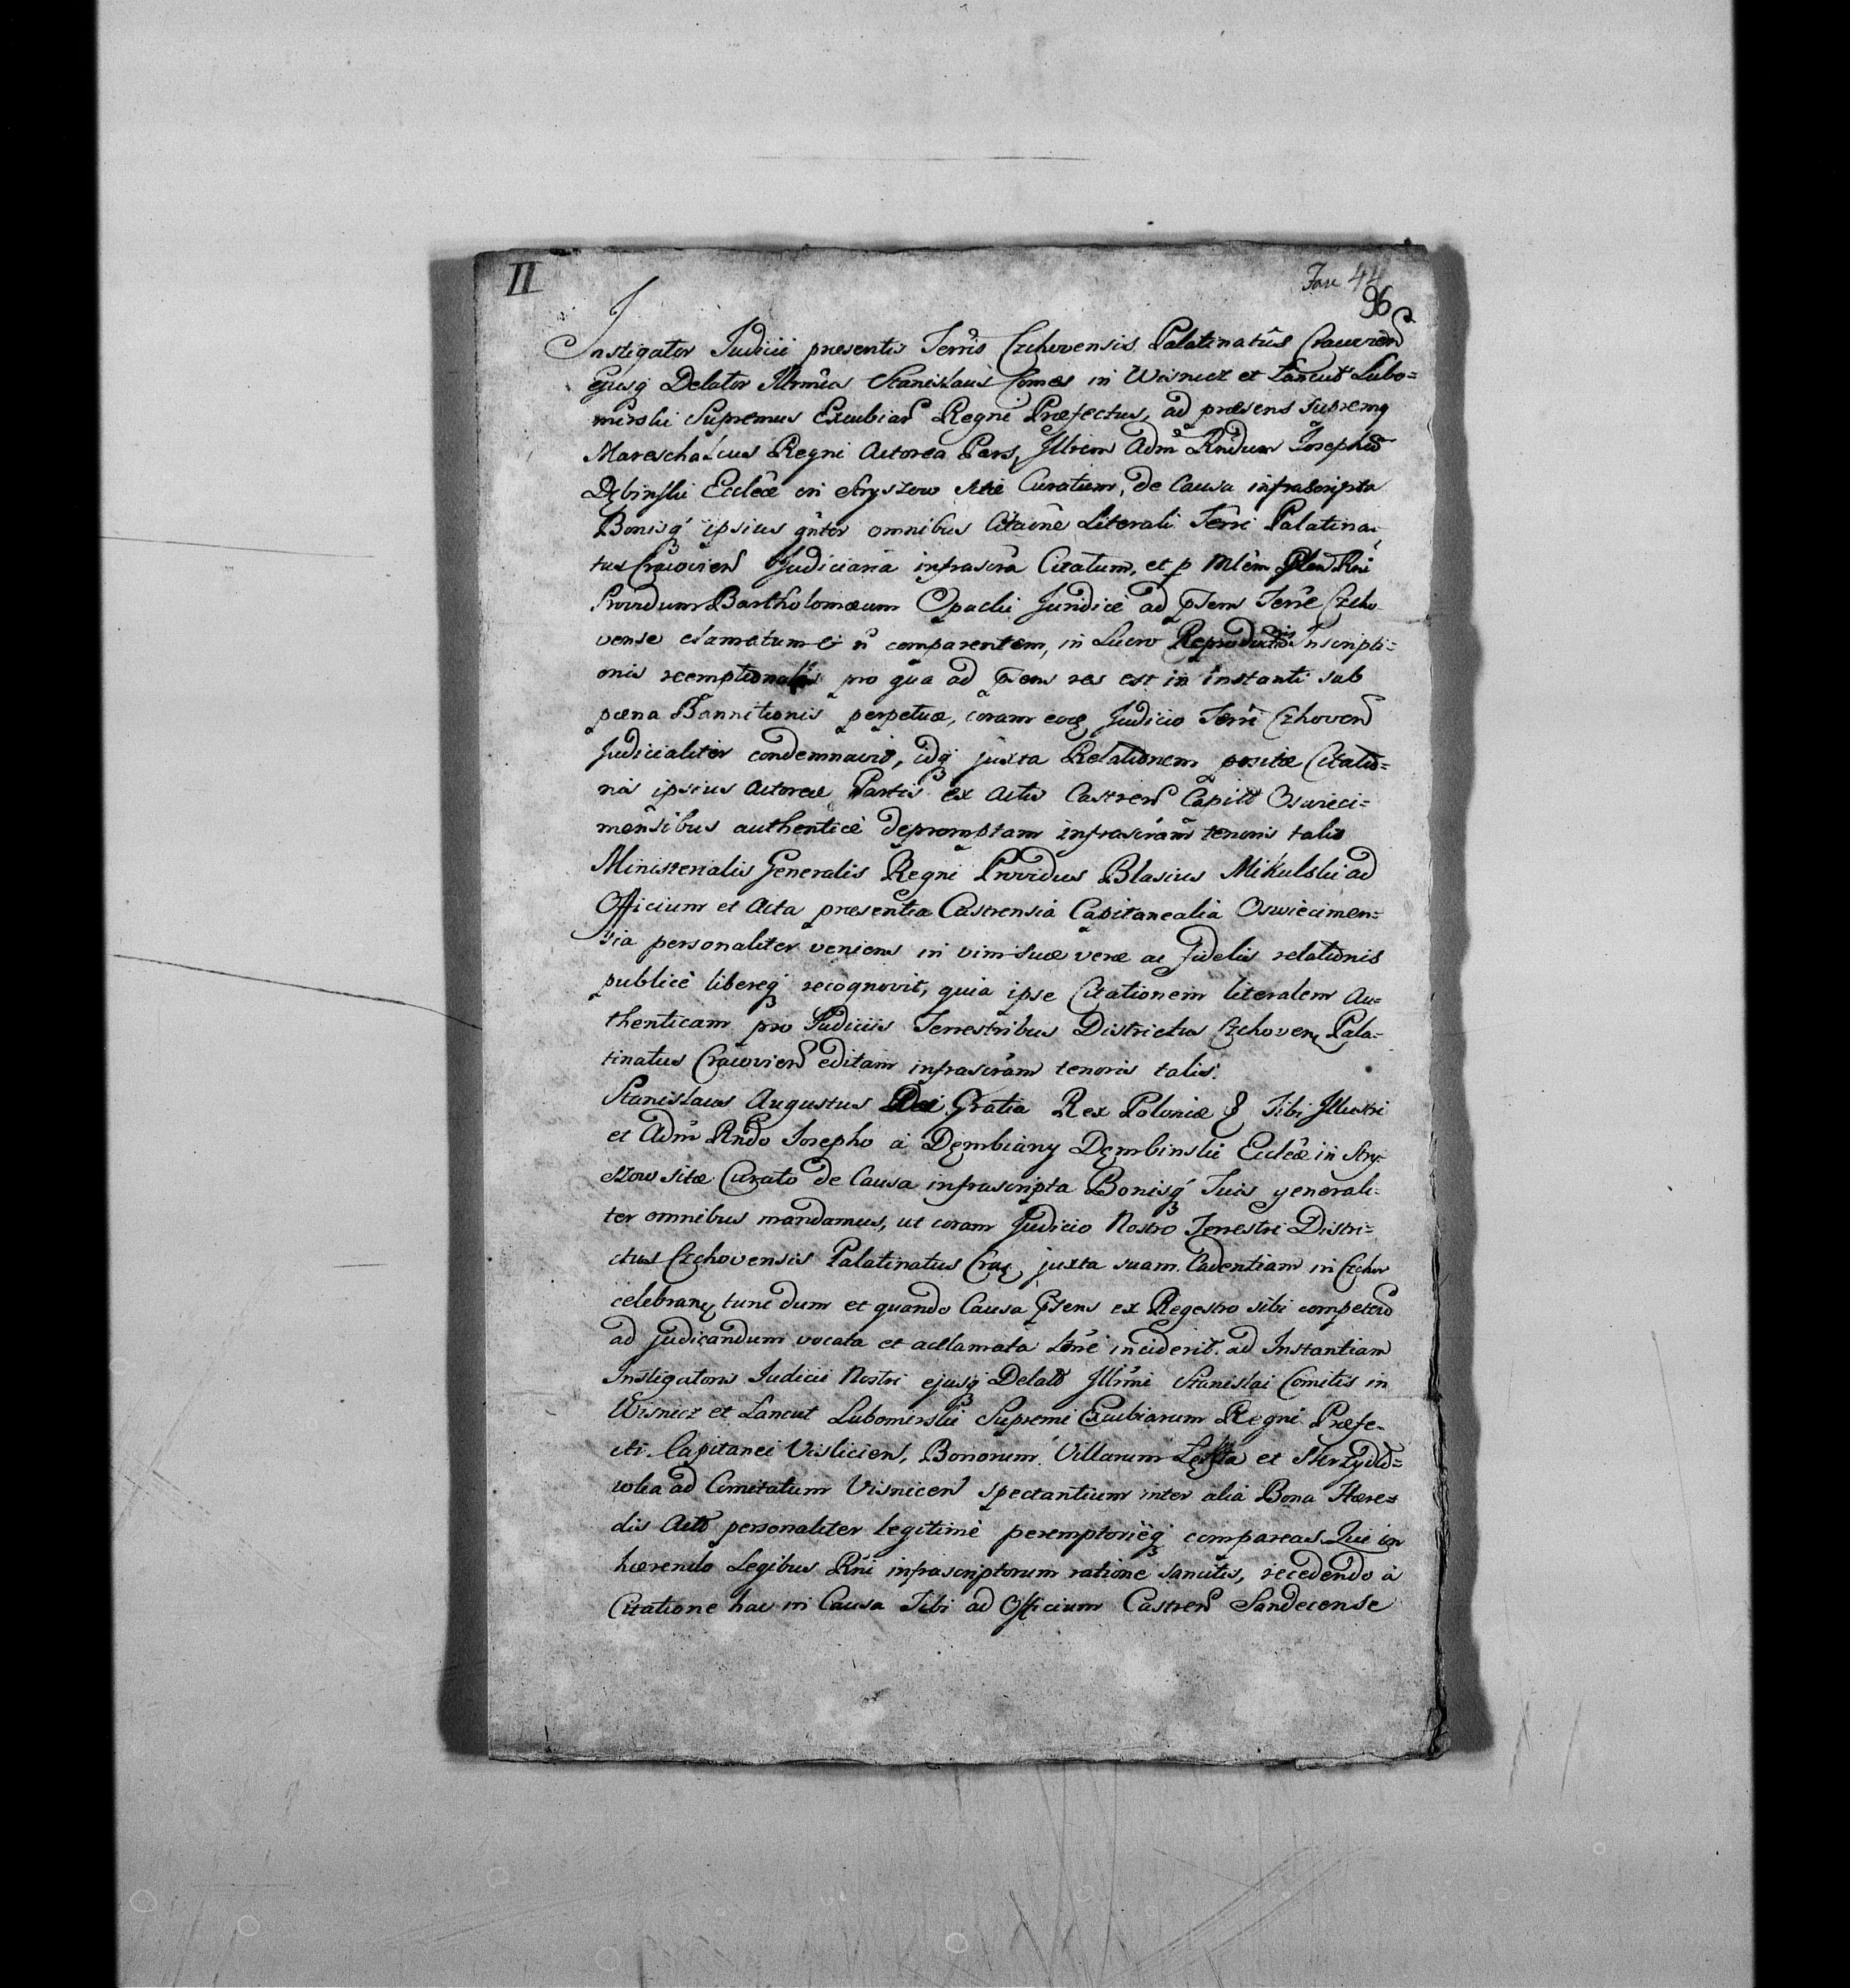 II
Fasc 44
96
Instigator Judicii presentis Terris Czchovensis Palatinatus Cracovien
ejusq Delator Illrmus Stanislaus Comes in Wisnicz et Lancut Lubo=
mirski Supremus Excubiar Regni Præfectus, ad præsens Supremq
Mareschalcus Regni Actorea Pars, Illrem Adm Rndum Josephū
Dębinski Eccleæ in Stryszow sitæ Curatum, de Causa infrascripta
Bonisq ipsius gnter omnibus Citaōne Literali Terri Palatina,
tus Cracovien Judiciaria infrascra Citatum, et p Mlem Glem Rni
Providum Bartholomæum Opacki Juridicè ad psens Terre Czcho
vense clamatum & ñ comparentem, in Lucro Reproductōis Inscripti=
onis reemptionalis pro qua ad psens res est in instanti sub
pœna Bannitionis perpetuæ, coram eodę Judicio Terri Czhoven
Judicialiter condemnavit, idq juxta Relationem positæ Citatio=
nis ipsius Actoreæ Partis ex Actis Castren Capitt Oswieci=
mensibus authenticè depromptam infrascram tenoris talis
Ministerialis Generalis Regni Providus Blasius Mikulski ad
Officium et Acta presentia Castrensia Capitanealia Oswiecimen=
sia personaliter veniens in vim suæ veræ ac fidelis relationis
publicè libereq recognovit, quia ipse Citationem literalem Au=
thenticam pro Judiciis Terrestribus Districtus Czchoven, Pala=
tinatus Cracovien editam infrascram tenoris talis.
Stanislaus Augustus Dei Gratia Rex Poloniæ & Tibi Illustri
et Adm Rndo Josepho à Dęmbiany Dęmbinski Eccleæ in Stry=
szow sitæ Curato de Causa infrascripta Bonisq Tuis generali=
ter omnibus mandamus, ut coram Judicio Nostro Terrestri Distri=
ctus Czchovensis Palatinatus Crac, juxta suam Cadentiam in Czchow
celebran, tunc dum et quando Causa psens ex Regestro sibi competen
ad judicandum vocata et acclamata inciderit ad Instantiam
Instigatoris Judicii Nostri ejusq Delato Illrmi Stanislai Comitis in
Wisnicz et Lancut Lubomirski Supremi Excubiarum Regni Præfe=
cti Capitanei Vislicien, Bonorum Villarum Łękta et
wlka ad Comitatum Visnicen spectantium inter alia Bona Hære=
dis Acto personaliter legitimè peremptorièq compareas Qui in
hærendo Legibus Rni infrascriptorum ratione sancitis, recedendo à
Citatione hac in Causa Tibi ad Officium Castren Sandecense